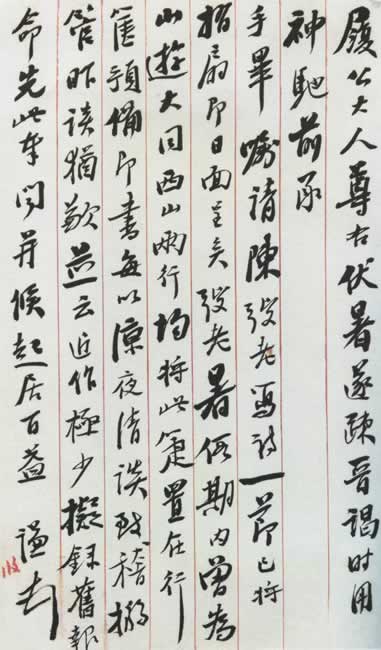 履公大人尊右伏暑遂疎晋謁时用
神馳前承
手畢嘱请陳弢老写诗一節已将
摺扇即日面呈矣弢老暑假期内曾为
山遊大同西山兩行均将此箑置在行
箧預備即書每以凉夜清谈致稽搦
管昨谈猶歉然云近作極少擬録舊報
命先此奉闻并候起居百益 谦